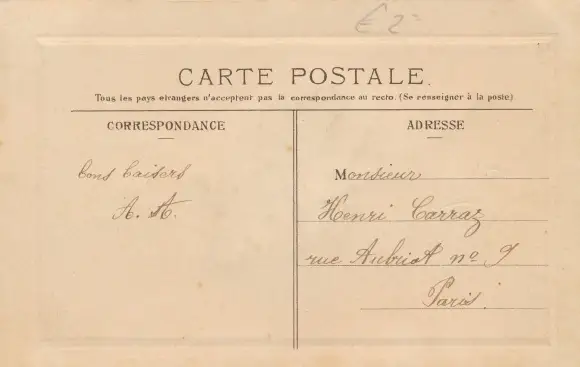 € 2=
CARTE POSTALE.
Tous les pays etrangers n'acceptent pas la correspondance au recto. (Se renseigner à la poste)
CORRESPONDANCE
bons baisers
A. A.
ADRESSE
Monsieur
Henri Carraz
rue Aubriot nº 9
Paris.